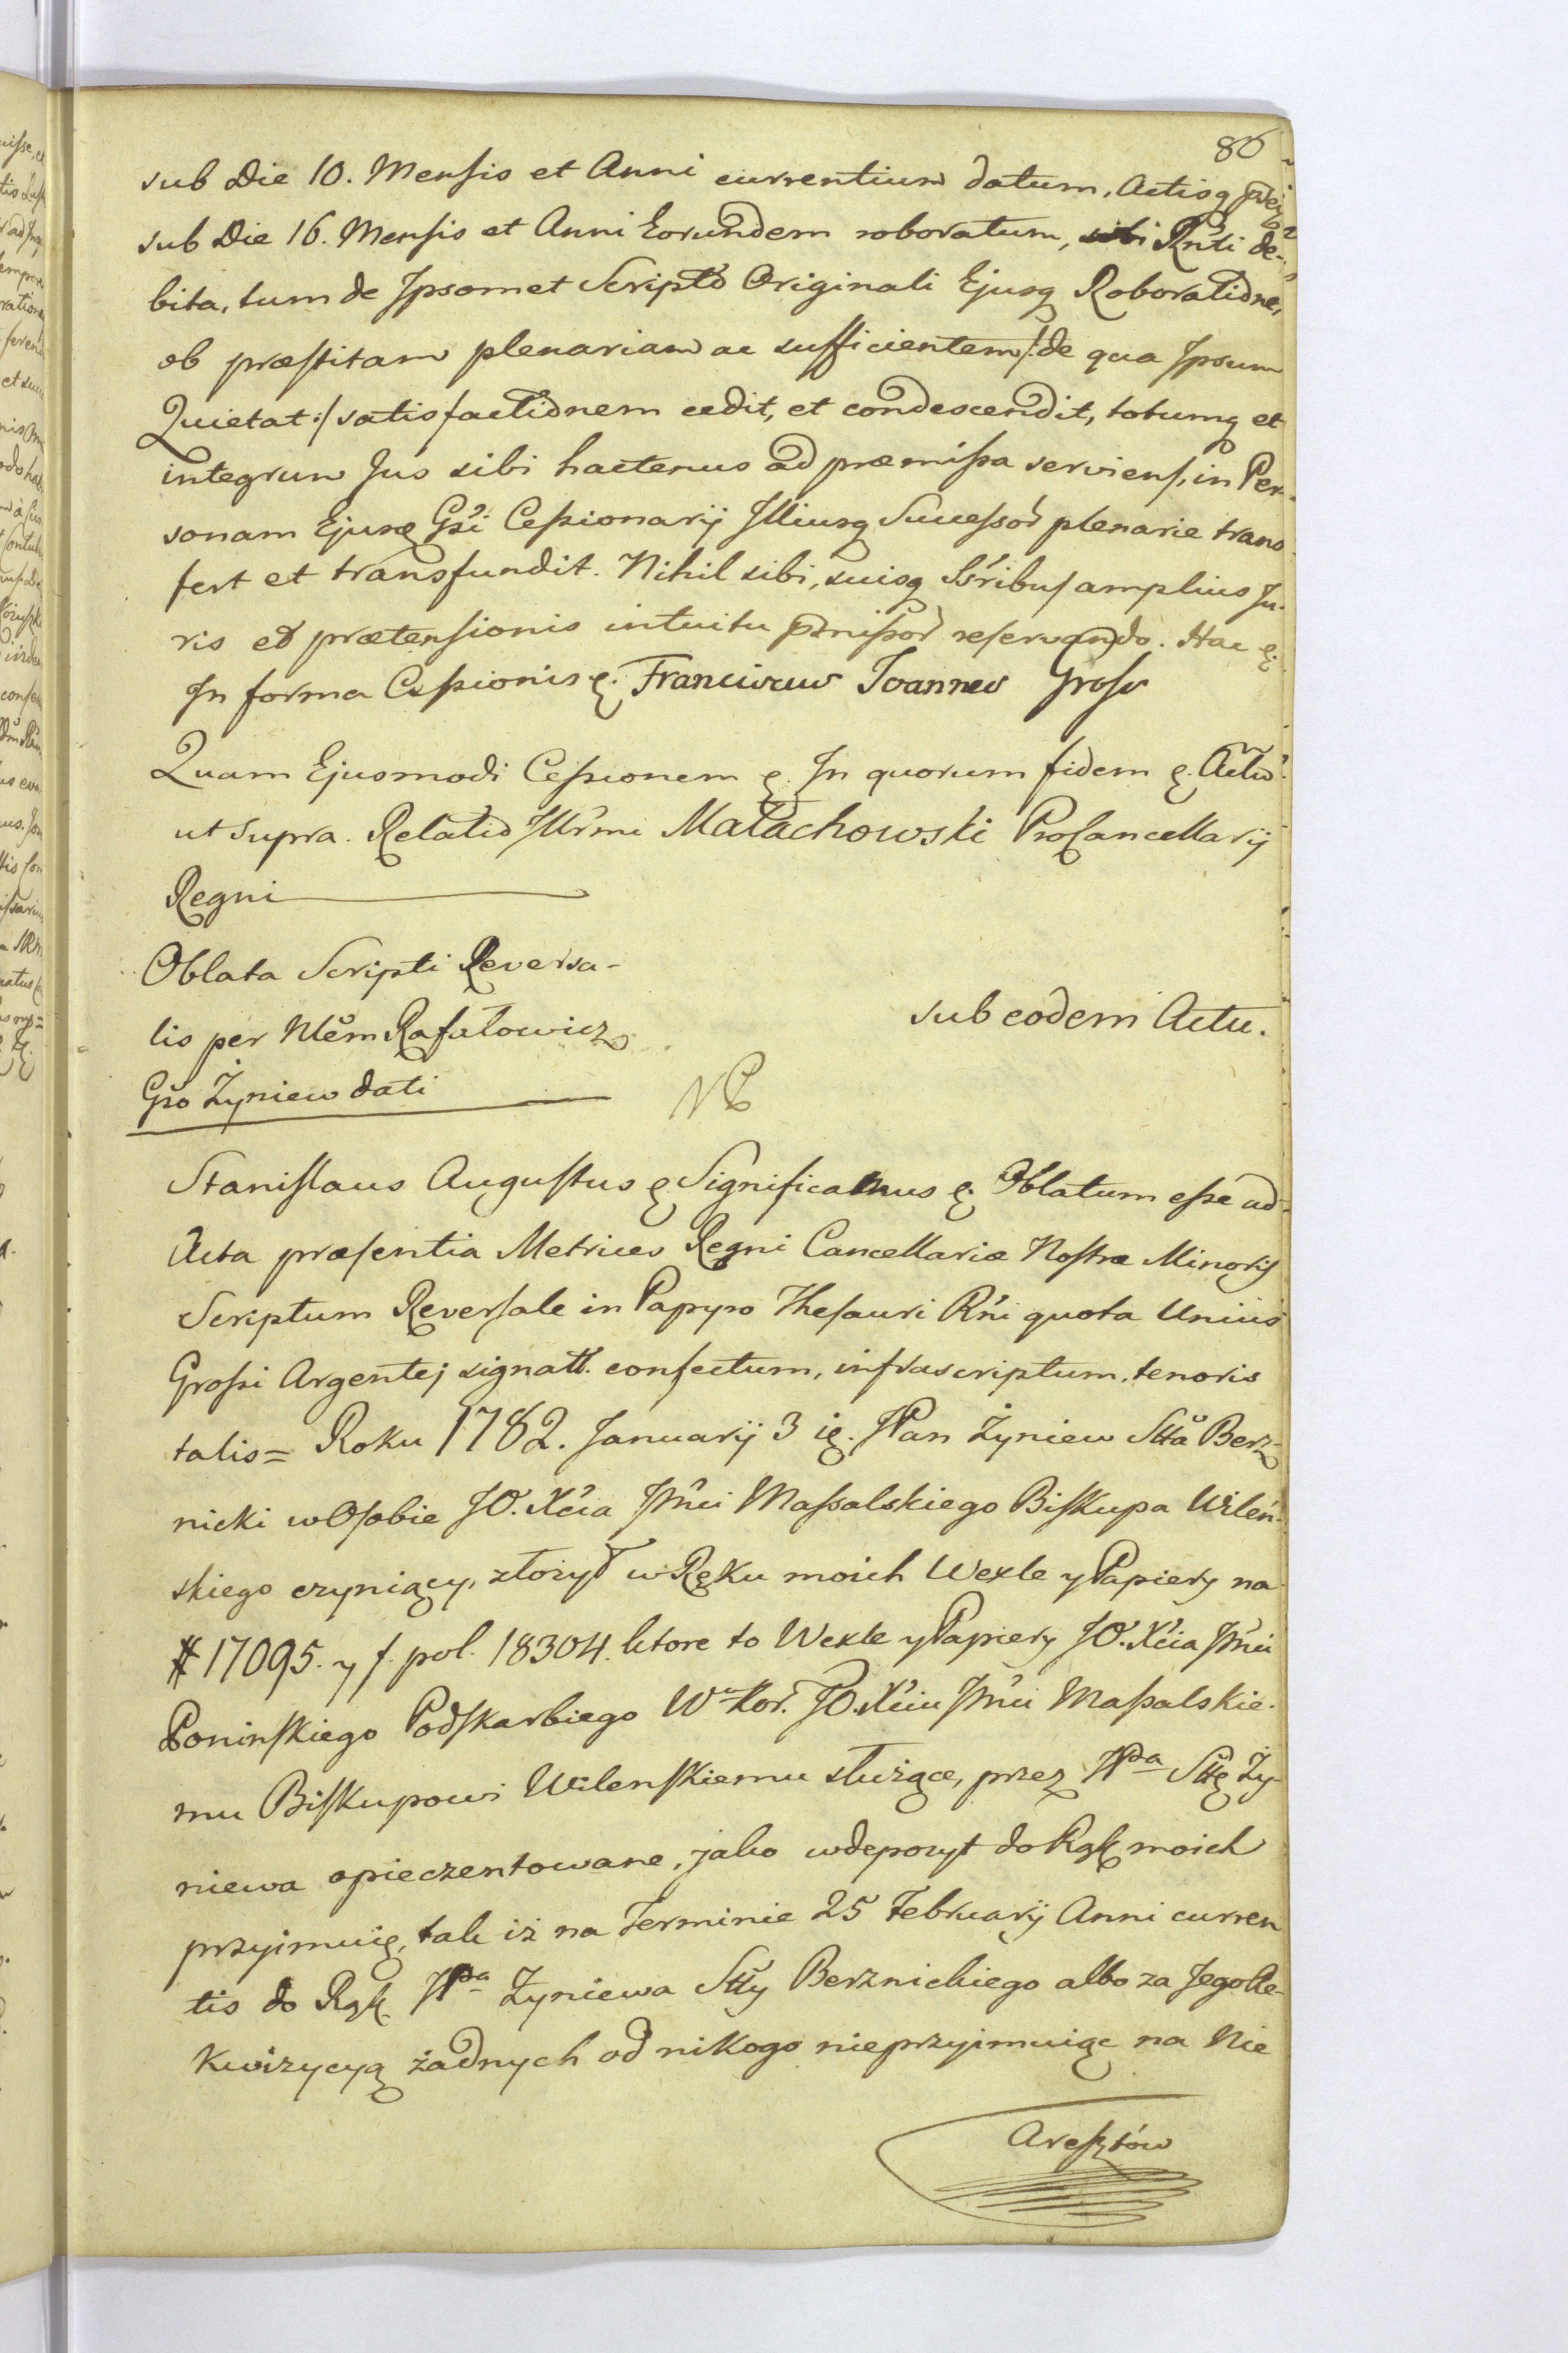 86
sub Die 10. Mensis et Anni currentium datum, Actisq
sub Die 16. Mensis et Anni Eorundem roboratum, Rnti de-
bita, tum de Ipsomet Scripto Originali Ejusq Roboratione,
ob præstitam plenariam ac sufficientem /: de qua Ipsum
Quietat :/ satisfactionem cedit, et condescendit, totumq et
integrum Jus sibi hactenus ad præmissa serviens, in Per-
sonam Ejusq Gsi Cessionarij Illiusq Successor plenarie trans-
fert et transfundit. Nihil sibi, suisq Ssribus amplius Ju-
ris et prætensionis intuitu pmissor reservando. Hac &.
In forma Cessionis &. Franciscus Joannes Gross
Quam Ejusmodi Cessionem &. In quorum fidem &. Actu
ut Supra. Relatio Illrmi Małachowski Procancellarij
Regni
Oblata Scripti Reversa-
lis per Nlem Rafałowicz
Gso Żyniew dati
sub eodem Actu.
Stanislaus Augustus &. Significamus &. Oblatum esse ad
Acta præsentia Metrices Regni Cancellariæ Nostræ Minoris
Scriptum Reversale in Papyro Thesauri Rni quota Unius
Grossi Argentej signatt. confectum, infrascriptum, tenoris
talis = Roku 1782. Januarij 3 ię. JPan Żyniew Stta Berz-
nicki w Osobie JO. Xcia Jmci Massalskiego Biskupa Wilen-
skiego czyniący, złożył w Ręku moich Wexle y Papiery na
# 17095. y f. pol. 18304. ktore to Wexle y Papiery JO. Xcia Jmci
Poninskiego Podskarbiego Wo Kor. JO. Xciu Jmci Massalskie-
mu Biskupowi Wilenskiemu służące, przez JPa Sttę Ży-
niewa opieczentowane, jako w depozyt do Rąk moich
przyimuię, tak iż na Terminie 25 Februarij Anni curren
tis do Rąk JPa Żyniewa Stty Berznickiego albo za Jego Re-
kwizycyą żadnych od nikogo nieprzyimuiąc na Nie
Aresztów